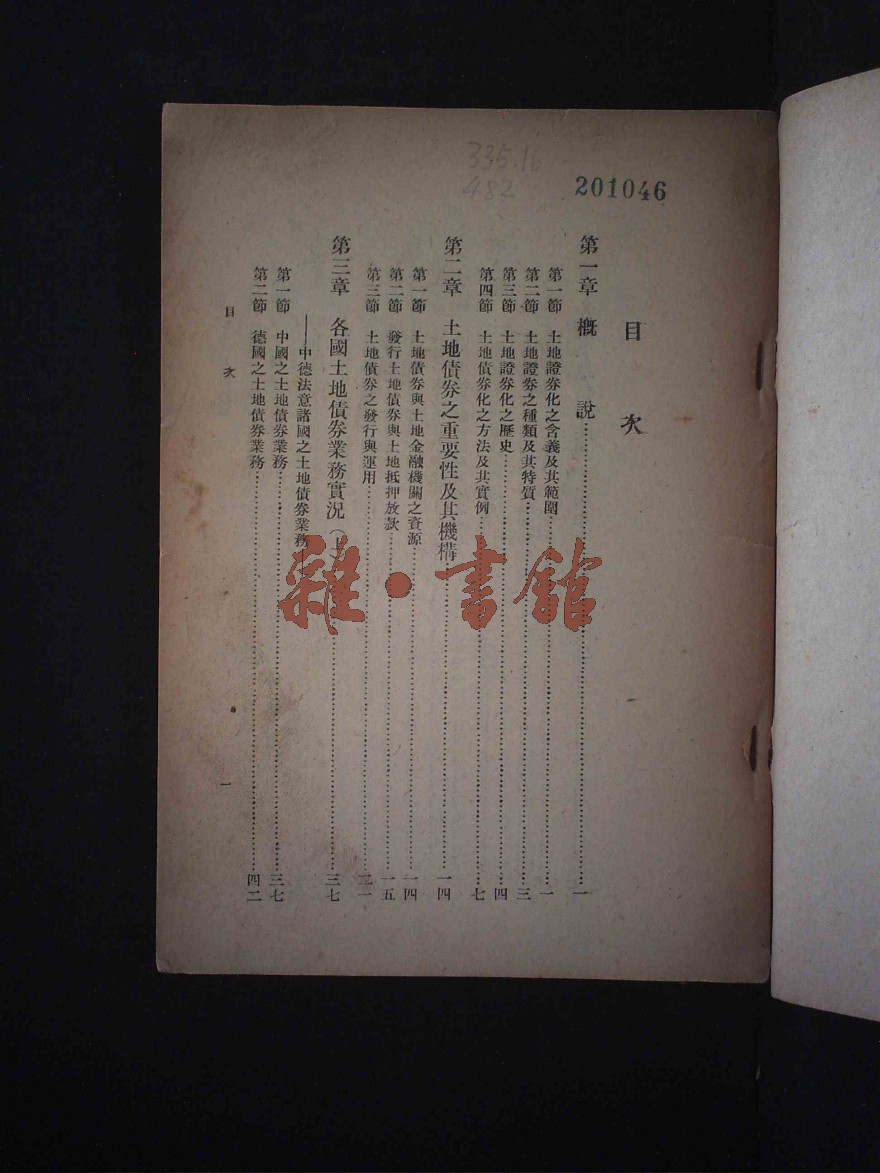 335.16
482
201046
目次
第一章 概說…………一
第一節 土地證券化之含義及其範圍…………一
第二節 土地證券之種類及其特質…………三
第三節 土地證券化之歷史…………四
第四節 土地債券化之方法及其實例…………七
第二章 土地債券之重要性及其機構…………一四
第一節 土地債券與土地金融機關之資源…………一四
第二節 發行土地債券與土地抵押放款…………一五
第三節 土地債券之發行與運用…………二一
第三章 各國土地債券業務實況(上)…………三七
——中德法意諸國之土地債券業務
第一節 中國之土地債券業務…………三七
第二節 德國之土地債券業務…………四二
目次 一
雜·書館